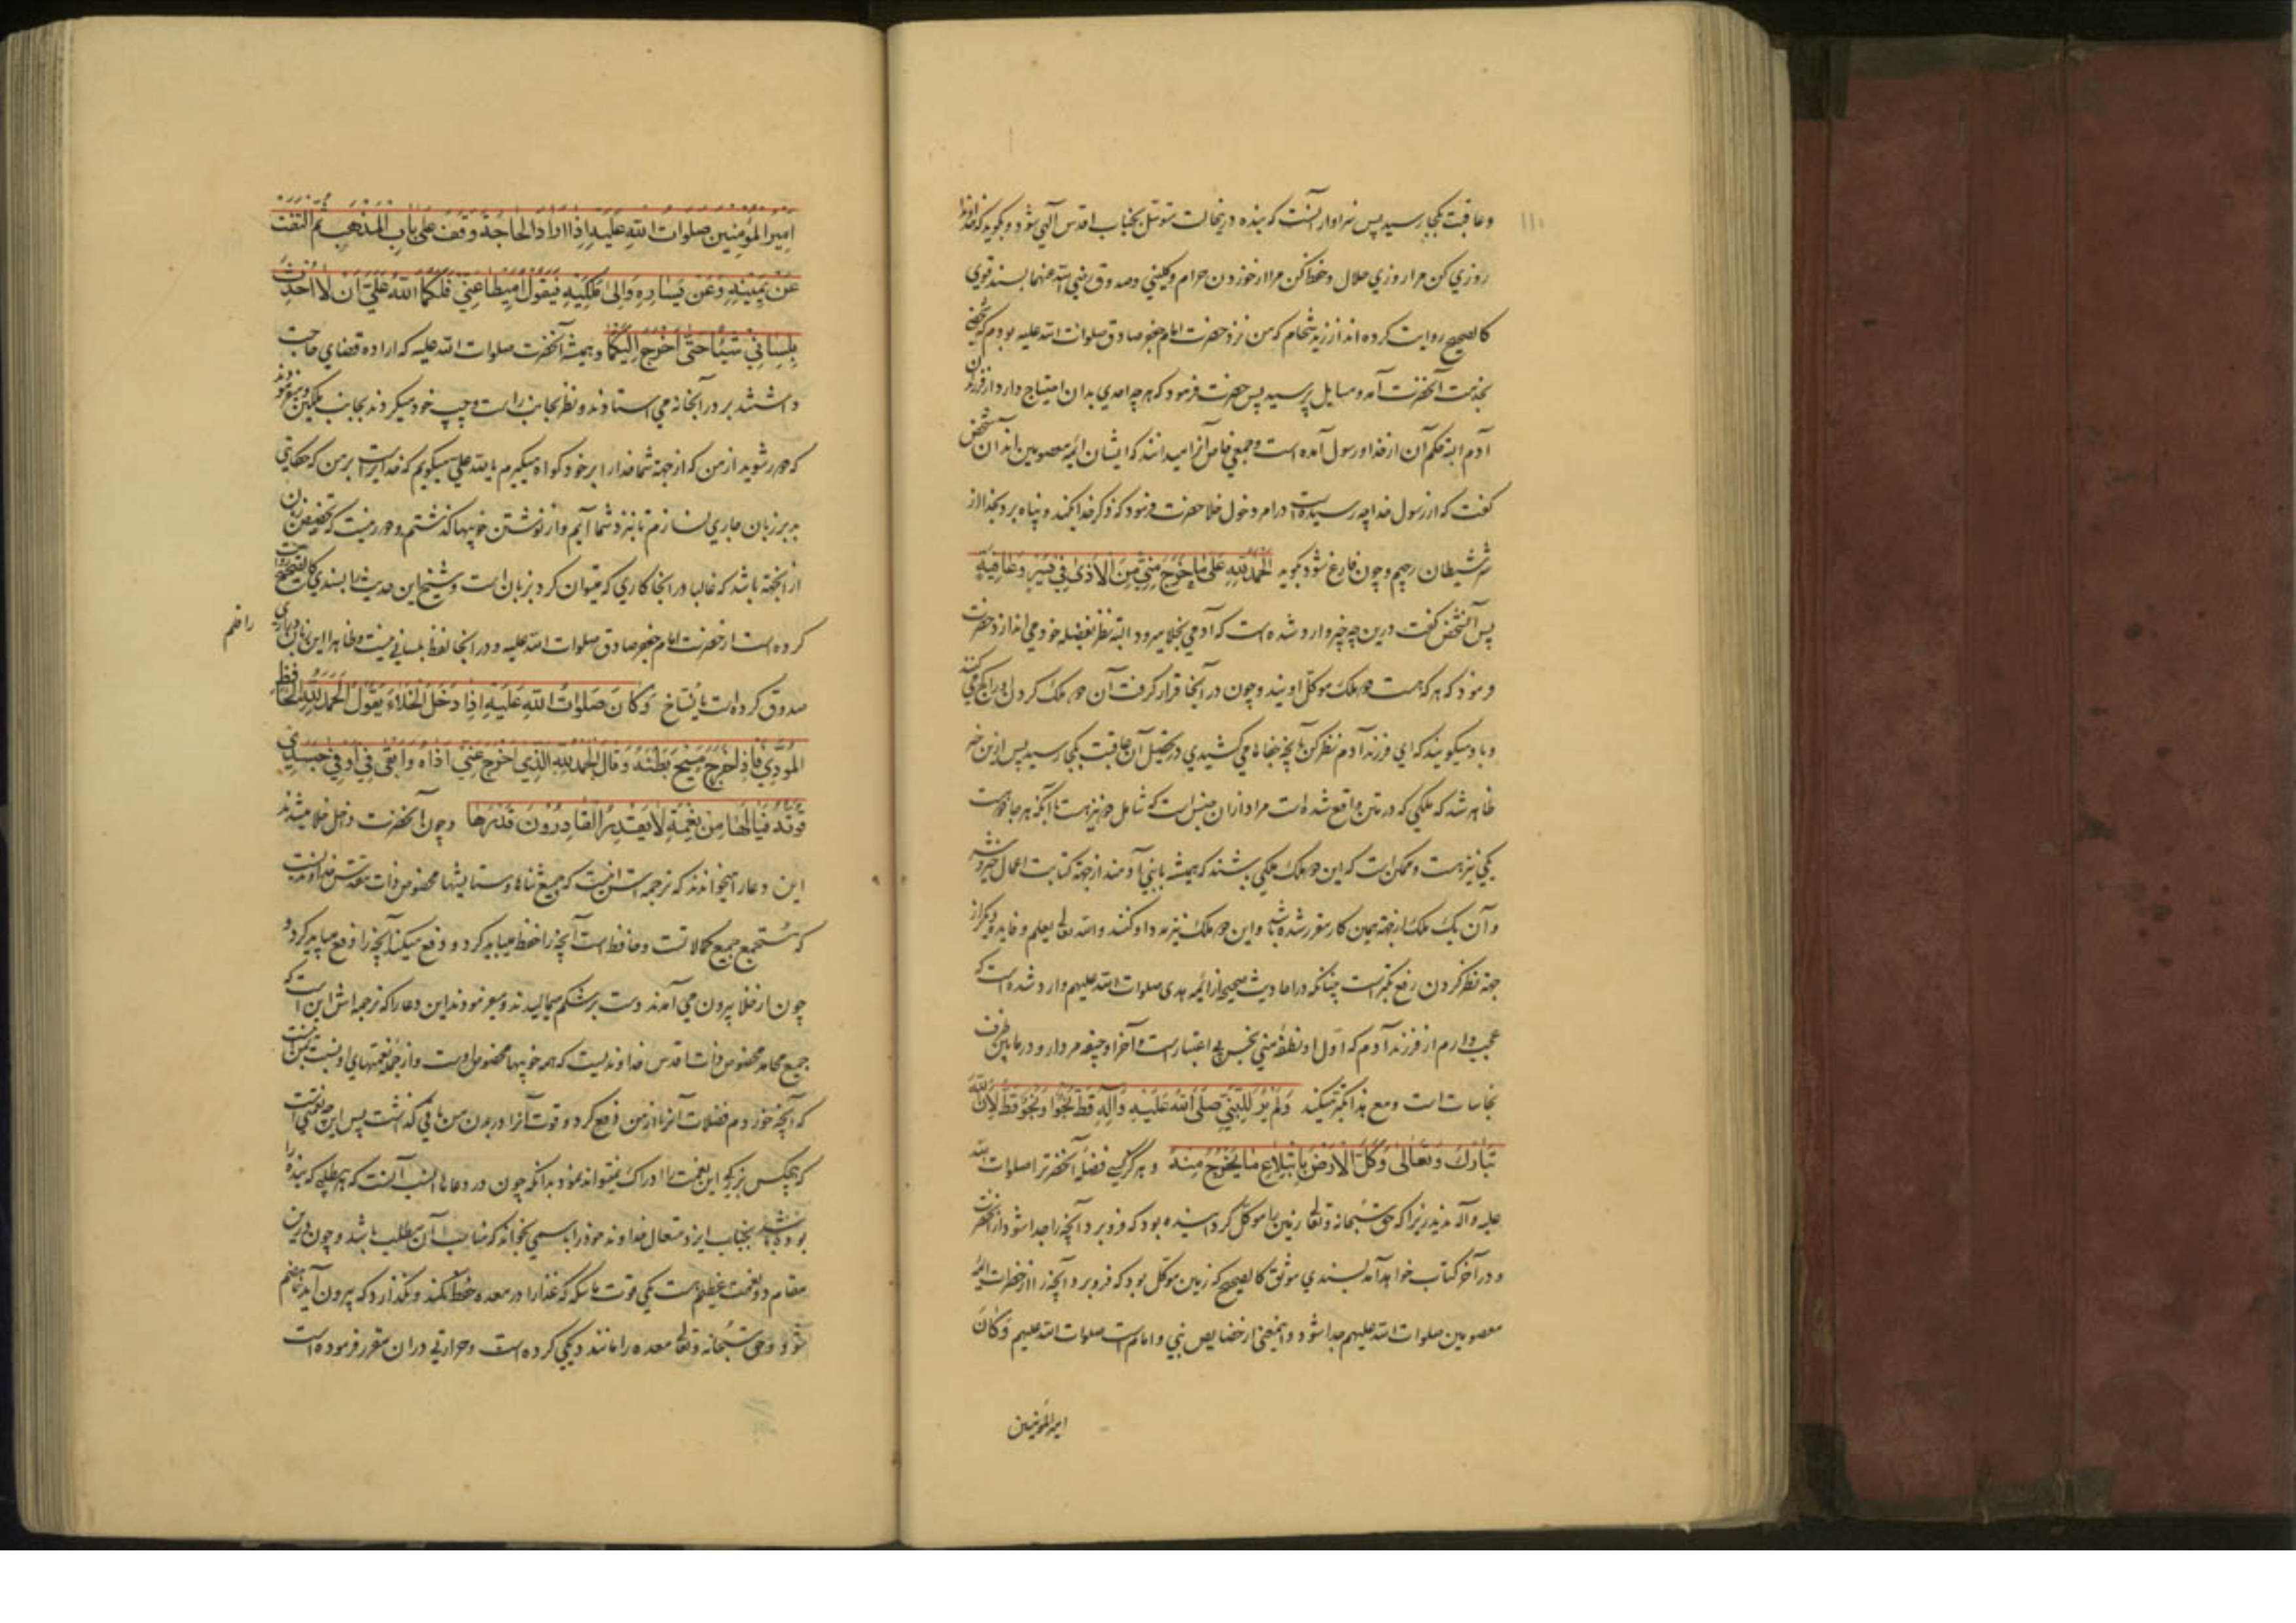 وعاقبت بکجا رسید پس سزاوار آنست که بنده درینحالت متوسل بجناب اقدس آلهی شود و بگوید که خداوندا
روزي کن مرا روزي حلال و حفظ کن مرا از خوردن حرام و کلیني و صدوق رضي الله عنهما بسند قوي
کالصحیح روایت کرده اند از زید شحام که من نزد حضرت امام جعفر صادق صلوات الله علیه بودم که شخصي
بخدمت آنحضرت آمد و مسایل پرسید پس حضرت فرمود که هر چه احدي بدان احتیاج دارد از فرزندان
آدم البته حکم آن از خدا و رسول آمده است و جمعي خاص آنرا میدانند که ایشان ائمه معصومین اند آن شخص
گفت که از رسول خدا چه رسیده است در امر دخول خلا حضرت فرمود که ذکر خدا بکند و پناه برد بخدا از
شر شیطان رجیم و چون فارغ شود بگوید اَلْحَمْدُ لِلّٰهِ عَلیٰ مٰا خَرَجَ مِنّي مِنَ الْاَذیٰ في یُسْرٍ وَ عٰافِیَةٍ
پس آنشخص گفت درین چه خبر وارد شده است که آدمي بخلا میرود البته نظر بفضله خود مي اندازد حضرت
فرمود که هر که هست دو ملک موکل اویند و چون در آنجا قرار گرفت آن دو ملک گردن او را کج مي کنند
و باو میگویند که اي فرزند آدم نظر کن بآنچه جفاها مي کشیدي در تحصیل آن عاقبت بکجا رسید پس ازین خبر
ظاهر شد که ملکي که در متن واقع شده است مراد ازان جنس است که شامل دو نیز هست با آنکه هر جا دو هست
یکي نیز هست و ممکن است که این دو ملک ملکي باشند که همیشه با بني آدمند از جهة کتابت اعمال خیر و شر
و آن یک ملک از جهة همین کار مقرر شده باشد و این دو ملک نیز مدد او کنند و الله تعالی یعلم و فایده دیگر از
جهة نظر کردن رفع تکبر است چنانکه در احادیث صحیحه از ائمه هدی صلوات الله علیهم وارد شده است که
عجب دارم از فرزند آدم که اول او نطفه مني نجس بي اعتبار است و آخر او جیفه مردار و در مابین ظرف
نجاسات است و مع هذا تکبر میکند وَ لَمْ یُرَ لِلنَّبِيِّ صَلَّی اللّٰهُ عَلَیْهِ وَ آلِهِ قَطُّ نَجْوٌ لِاَنَّ اللّٰهَ
تَبٰارَکَ وَ تَعٰالیٰ وَکَّلَ الْاَرْضَ بِابْتِلاٰعِ مٰا یَخْرُجُ مِنْهُ و هرگز کسي فضله آنحضرترا صلوات الله
علیه و آله ندید زیرا که حق سبحانه و تعالی زمین را موکل گردانیده بود که فرو برد آنچه را جدا شود از آنحضرت
و در آخر کتاب خواهد آمد بسندي موثق کالصحیح که زمین موکل بود که فرو برد آنچه را از حضرات ائمه
معصومین صلوات الله علیهم جدا شود و اینمعني از خصایص نبي و امام است صلوات الله علیهم وَ کٰانَ
امیرالمؤمنین
اَمِیرُ الْمُؤْمِنِینَ صَلَوٰاتُ اللّٰهِ عَلَیْهِ اِذٰا اَرٰادَ الْحٰاجَةَ وَقَفَ عَلیٰ بٰابِ الْمَذْهَبِ ثُمَّ الْتَفَتَ
عَنْ یَمِینِهِ وَ عَنْ یَسٰارِهِ وَ اِلیٰ مَلَکَیْهِ فَیَقُولُ اَمِیطٰا عَنِّي فَلَکُمَا اللّٰهُ عَلَيَّ اَنْ لاٰ اُحْدِثَ
بِلِسٰانِي شَیْئًا حَتّیٰ اَخْرُجَ اِلَیْکُمٰا و همیشه آنحضرت صلوات الله علیه که اراده قضاي حاجت
داشتند بر در آنخانه مي استادند و نظر بجانب راست و چپ خود میکردند بجانب ملکین و میفرمودند
که دور شوید از من که از جهة شما خدا را بر خود گواه میگیرم یا لله علي میگویم که خدا راست بر من که حکایتي
بر زبان جاري نسازم تا بنزد شما آیم و از نوشتن خوبیها گذشتم و دور نیست که تخصیص زبان
از انجهة باشد که غالبا در انجا کاري که میتوان کرد بزبان است و شیخ این حدیث را بسندي کالصحیح روایت
کرده است از حضرت امام جعفر صادق صلوات الله علیه و در انجا لفظ بلساني نیست و ظاهرا این زبان در عبارت
راضم
صدوق کرده است یا نساخ وَ کٰانَ صَلَوٰاتُ اللّٰهِ عَلَیْهِ اِذٰا دَخَلَ الْخَلاٰءَ یَقُولُ الْحَمْدُ لِلّٰهِ الْحٰافِظِ
الْمُؤَدِّي فَاِذٰا خَرَجَ مَسَحَ بَطْنَهُ وَ قٰالَ الْحَمْدُ لِلّٰهِ الَّذِي اَخْرَجَ عَنِّي اَذٰاهُ وَ اَبْقیٰ فِي جَسَدِي
قُوَّتَهُ فَیٰا لَهٰا مِنْ نِعْمَةٍ لاٰ یَقْدِرُ الْقٰادِرُونَ قَدْرَهٰا و چون آنحضرت داخل خلا میشدند
این دعا را میخواندند که ترجمه اش اینست که جمیع ثناها و ستایشها مخصوص ذات مقدس خداوندیست
که مستجمع جمیع کمالاتست و حافظ است آنچه را حفظ میباید کرد و دفع میکند آنچه را دفع میباید کرد و
چون از خلا بیرون مي آمدند دست بر شکم میمالیدند و میفرمودند این دعا را که ترجمه اش این است که
جمیع محامد مخصوص ذات اقدس خداوندیست که همه خوبیها مخصوص اوست و از جمله نعمتهاي او نسبت بمن اینست
که آنچه خوردم فضلات آنرا از من دفع کرد و قوت آنرا در بدن من باقي گذاشت پس این چه نعمتي است
که هیچکس بزرگي این نعمت را ادراک نمیتواند نمود بدانکه چون در دعاها انسب آنست که هر مطلبي که بنده را
بوده باشد بجناب ایزد متعال خداوند خود را باسمي بخواند که مناسب آن مطلب باشد و چون درین
مقام دو نعمت عظیم هست یکي قوت ماسکه که غذا را در معده حفظ میکند و نگذارد که بیرون آید تا هضم
شود و حق سبحانه و تعالی معده را مانند دیگي کرده است و حرارتي در ان مقرر فرموده است